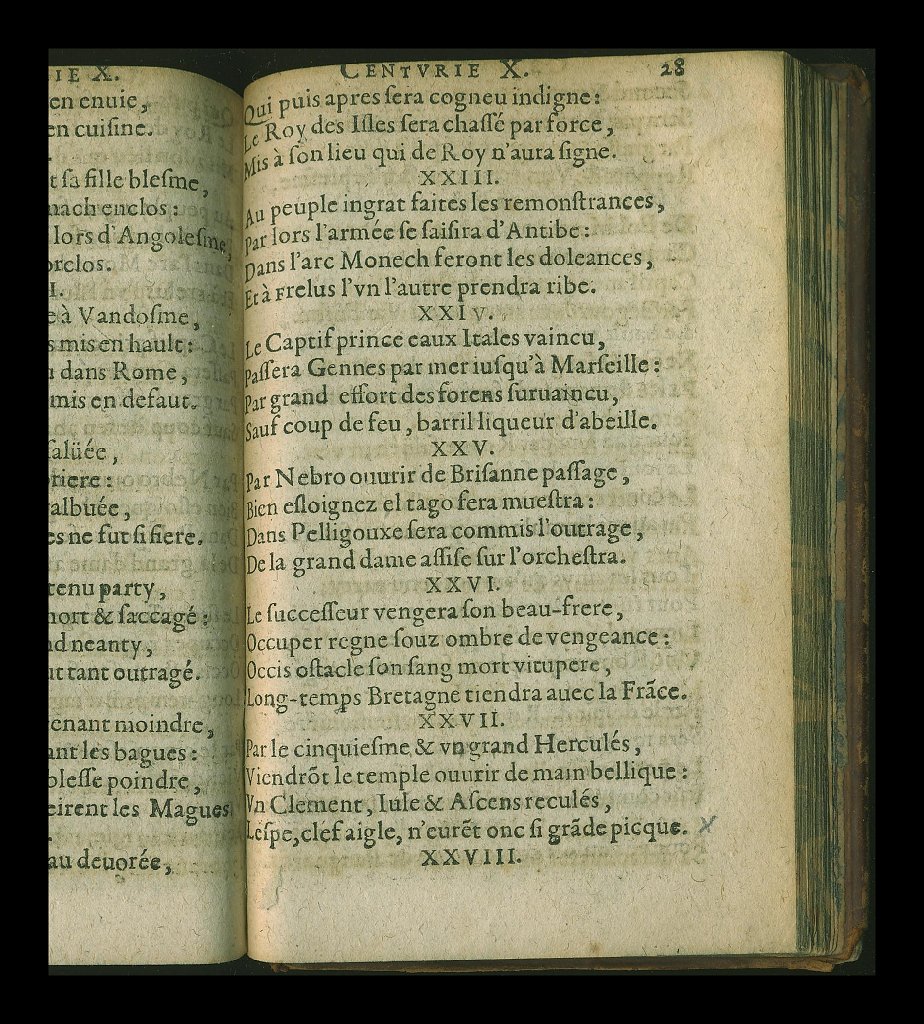 IE X.
en enuie,
en cuiſine.
t ſa fille bleſme,
nach enclos:
lors d'Angoleſme,
orclos.
I.
e à Vandoſme,
s mis en hault:
u dans Rome,
mis en defaut.
ſalüée,
briere:
albuée,
es ne fut ſi fiere.
tenu party,
mort & ſaccagé:
nd neanty,
ut tant outragé.
enant moindre,
ant les bagues:
bleſſe poindre,
eirent les Magues
au deuorée,
CENTVRIE X. 28
Qui puis apres ſera cogneu indigne:
Le Roy des Iſles ſera chaſſé par force,
Mis à ſon lieu qui de Roy n'aura ſigne.
XXIII.
Au peuple ingrat faites les remonſtrances,
Par lors l'armée ſe ſaiſira d'Antibe:
Dans l'arc Monech feront les doleances,
Et à Frelus l'vn l'autre prendra ribe.
XXIV.
Le Captif prince eaux Itales vaincu,
Paſſera Gennes par mer iuſqu'à Marſeille:
Par grand effort des forens ſuruaincu,
Sauf coup de feu, barril liqueur d'abeille.
XXV.
Par Nebro ouurir de Briſanne paſſage,
Bien eſloignez el tago fera mueſtra:
Dans Pelligouxe ſera commis l'outrage,
De la grand dame aſſiſe ſur l'orcheſtra.
XXVI.
Le ſucceſſeur vengera ſon beau-frere,
Occuper regne ſouz ombre de vengeance:
Occis oſtacle ſon ſang mort vitupere,
Long-temps Bretagne tiendra auec la Frãce.
XXVII.
Par le cinquieſme & vn grand Herculés,
Viendrõt le temple ouurir de main bellique:
Vn Clement, Iule & Aſcens reculés,
Leſpe, clef aigle, n'eurẽt onc ſi grãde picque.
XXVIII.